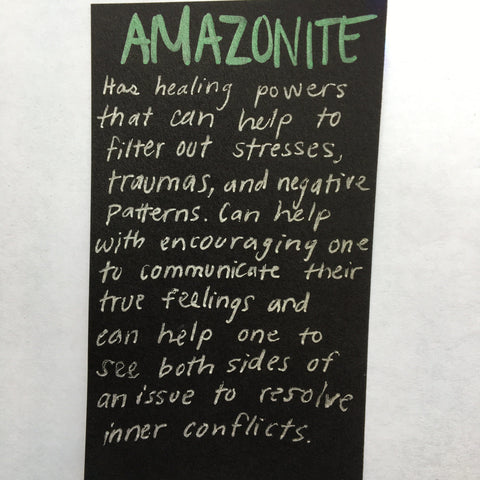 AMAZONITE
Has healing powers
that can help to
filter out stresses,
traumas, and negative
patterns. Can help
with encouraging one
to communicate their
true feelings and
can help one to
see both sides of
an issue to resolve
inner conflicts.